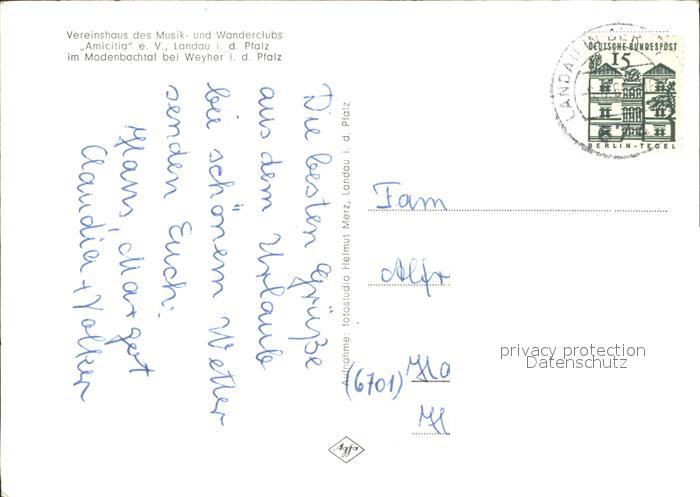 Vereinshaus des Musik- und Wanderclubs
„Amicitia" e. V., Landau i. d. Pfalz
im Modenbachtal bei Weyher i. d. Pfalz
Die besten Grüße
aus dem Urlaub
bei schönem Wetter
senden Euch:
Hans, Margot
Claudia + Volker
Aufnahme: fotostudio Helmut Merz, Landau i. d. Pfalz
LANDAU IN DER
DEUTSCHE BUNDESPOST
15
BERLIN-TEGEL
Fam
Alfr
(6701) Ho
privacy protection
Datenschutz